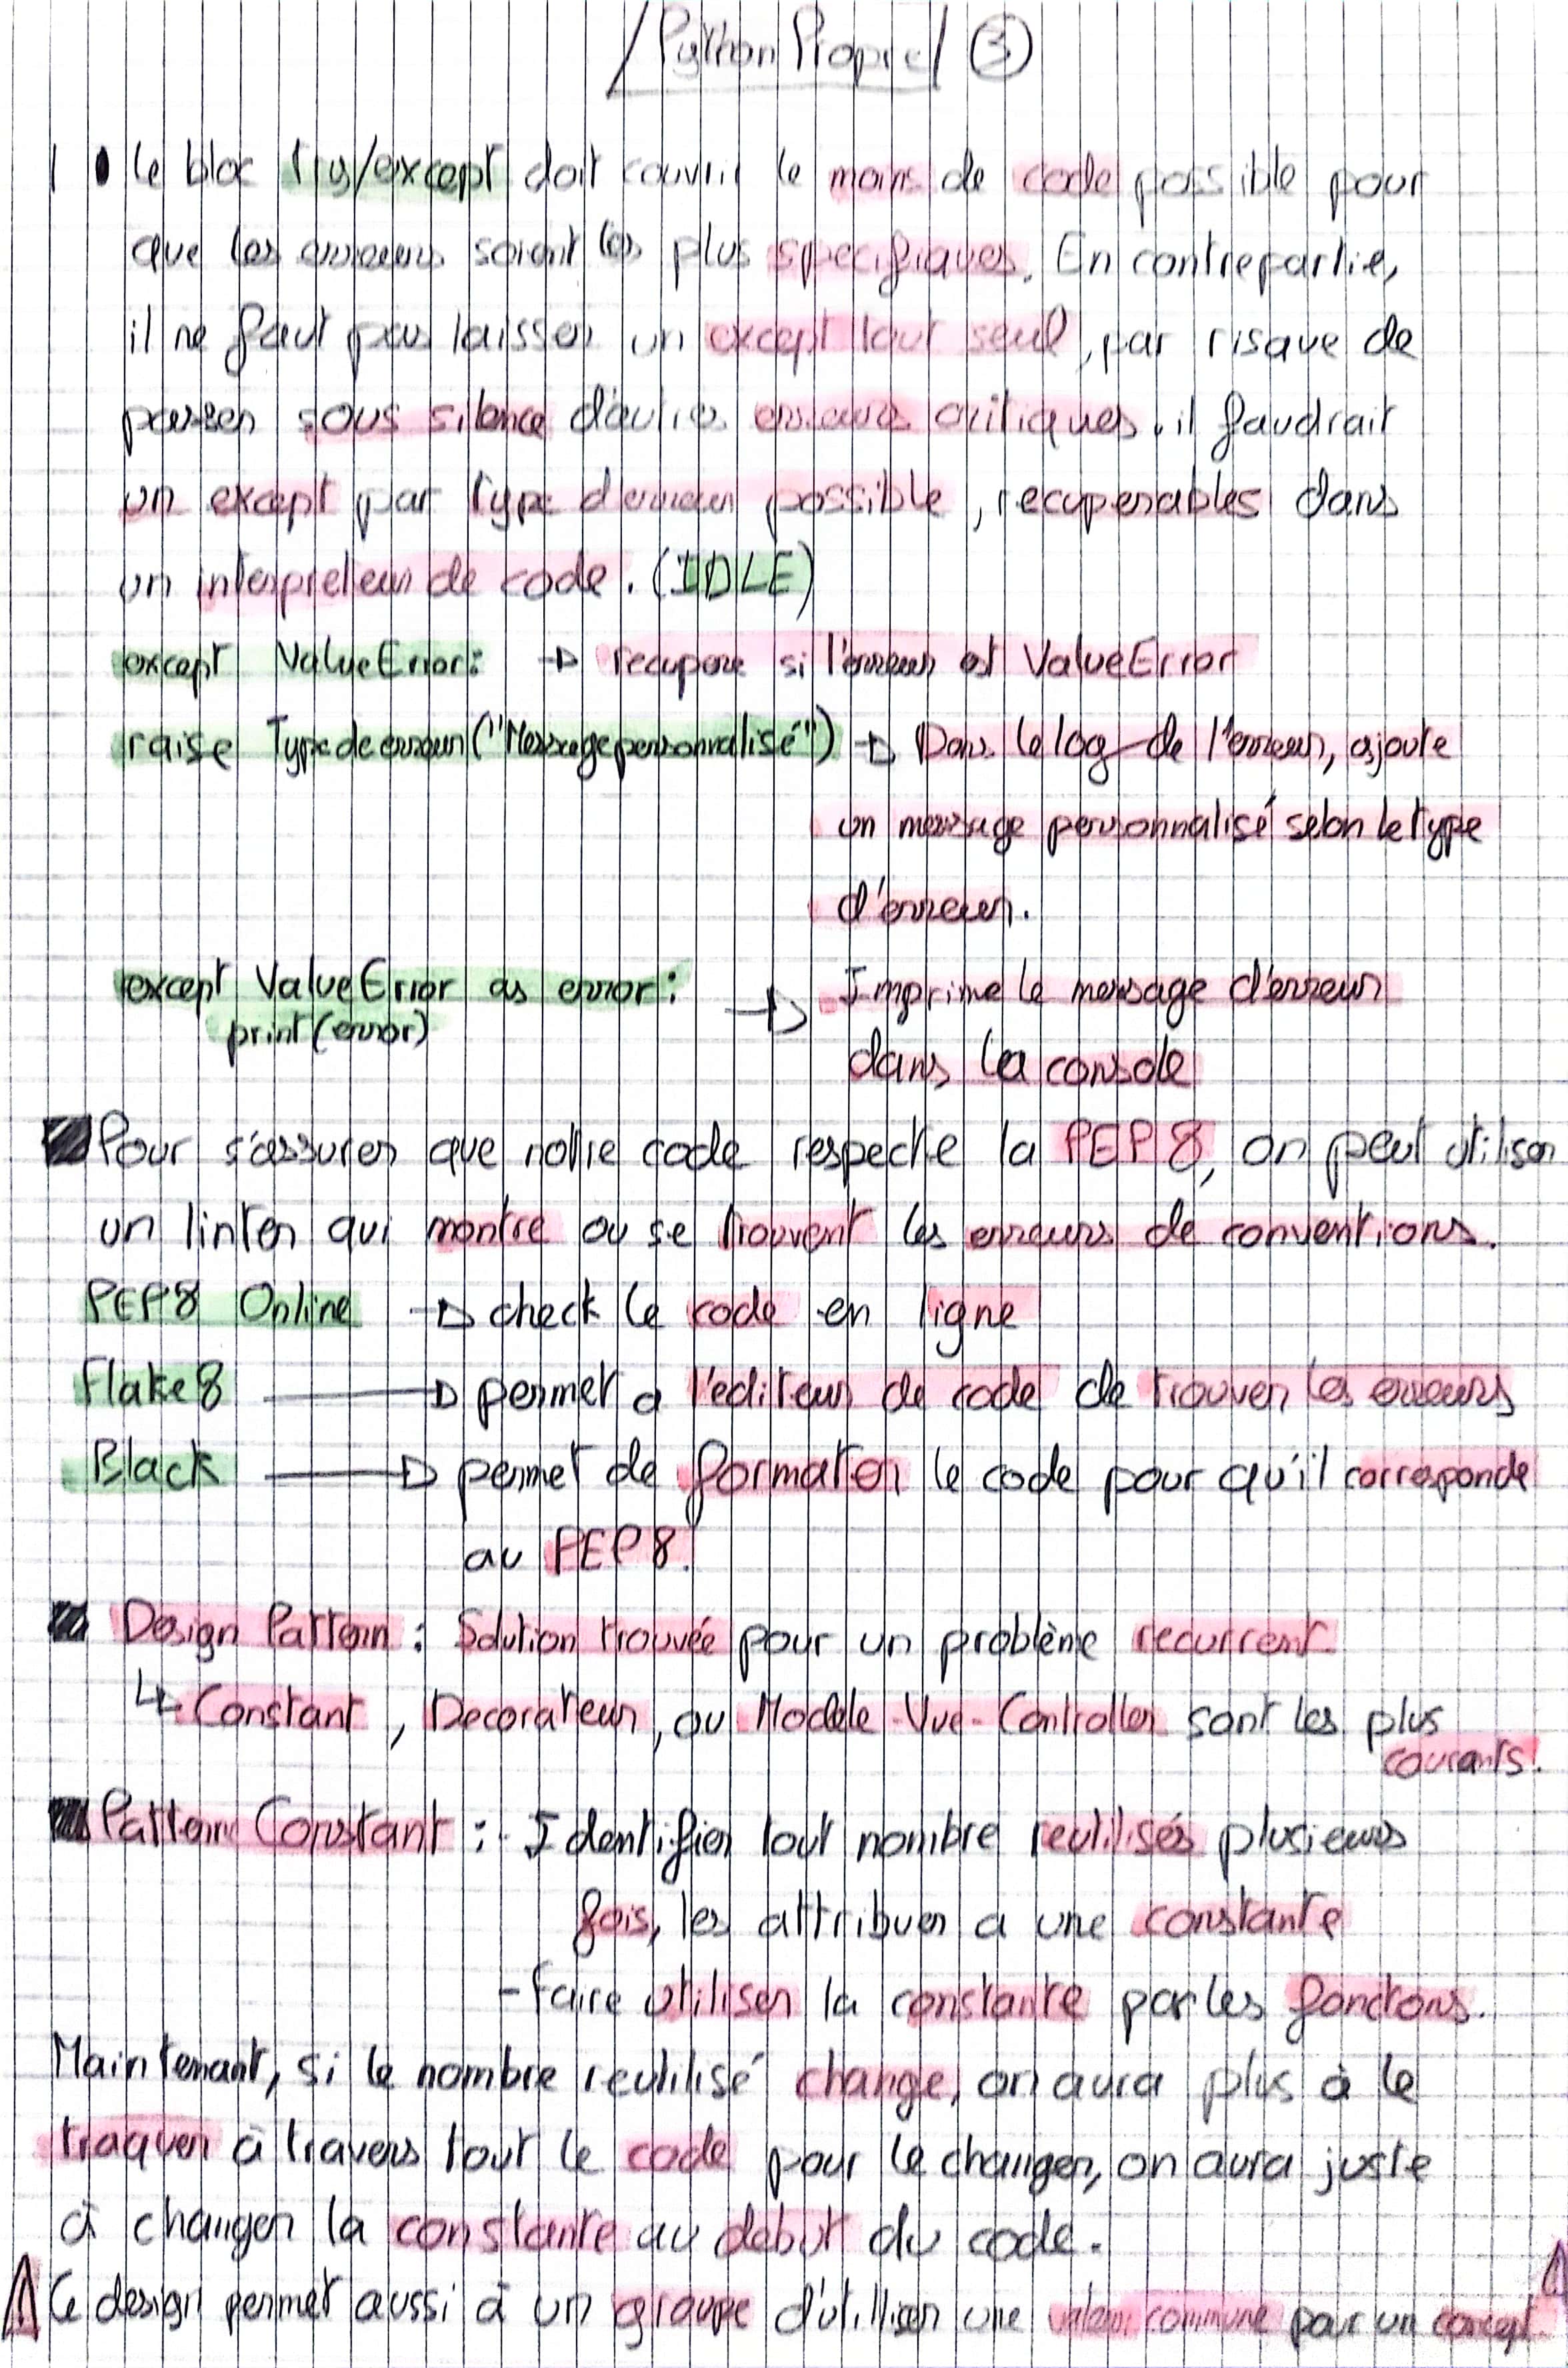 Python Propre ③
Le bloc try/except doit couvrir le moins de code possible pour
que les erreurs soient les plus specifiques. En contrepartie,
il ne faut pas laisser un except tout seul, par risque de
passer sous silence d'autres erreurs critiques. il faudrait
un except par type d'erreur possible, recuperables dans
un interpreteur de code. (IDLE)
except ValueError: → recupere si l'erreur est ValueError
raise Type de erreur("Message personnalisé") → Dans le log de l'erreur, ajoute
un message personnalisé selon le type
d'erreur.
except ValueError as error: → Imprime le message d'erreur
print(error)
dans la console
Pour s'assurer que notre code respecte la PEP 8, on peut utiliser
un linter qui montre ou se trouvent les erreurs de conventions.
PEP8 Online → check le code en ligne
Flake8 → permet a l'editeur de code de trouver les erreurs
Black → permet de formater le code pour qu'il corresponde
au PEP8.
Design Pattern : Solution trouvée pour un problème recurrent.
↳ Constant, Decorateur, ou Modele-Vue-Controller sont les plus
courants.
Pattern Constant : - Identifier tout nombre reutilisés plusieurs
fois, les attribuer a une constante
- Faire utiliser la constante par les fonctons.
Maintenant, si le nombre reutilisé change, on aura plus à le
traquer à travers tout le code pour le changer, on aura juste
à changer la constante au debut du code.
⚠ Ce design permet aussi à un groupe d'utiliser une valeur commune pour un concept. ⚠